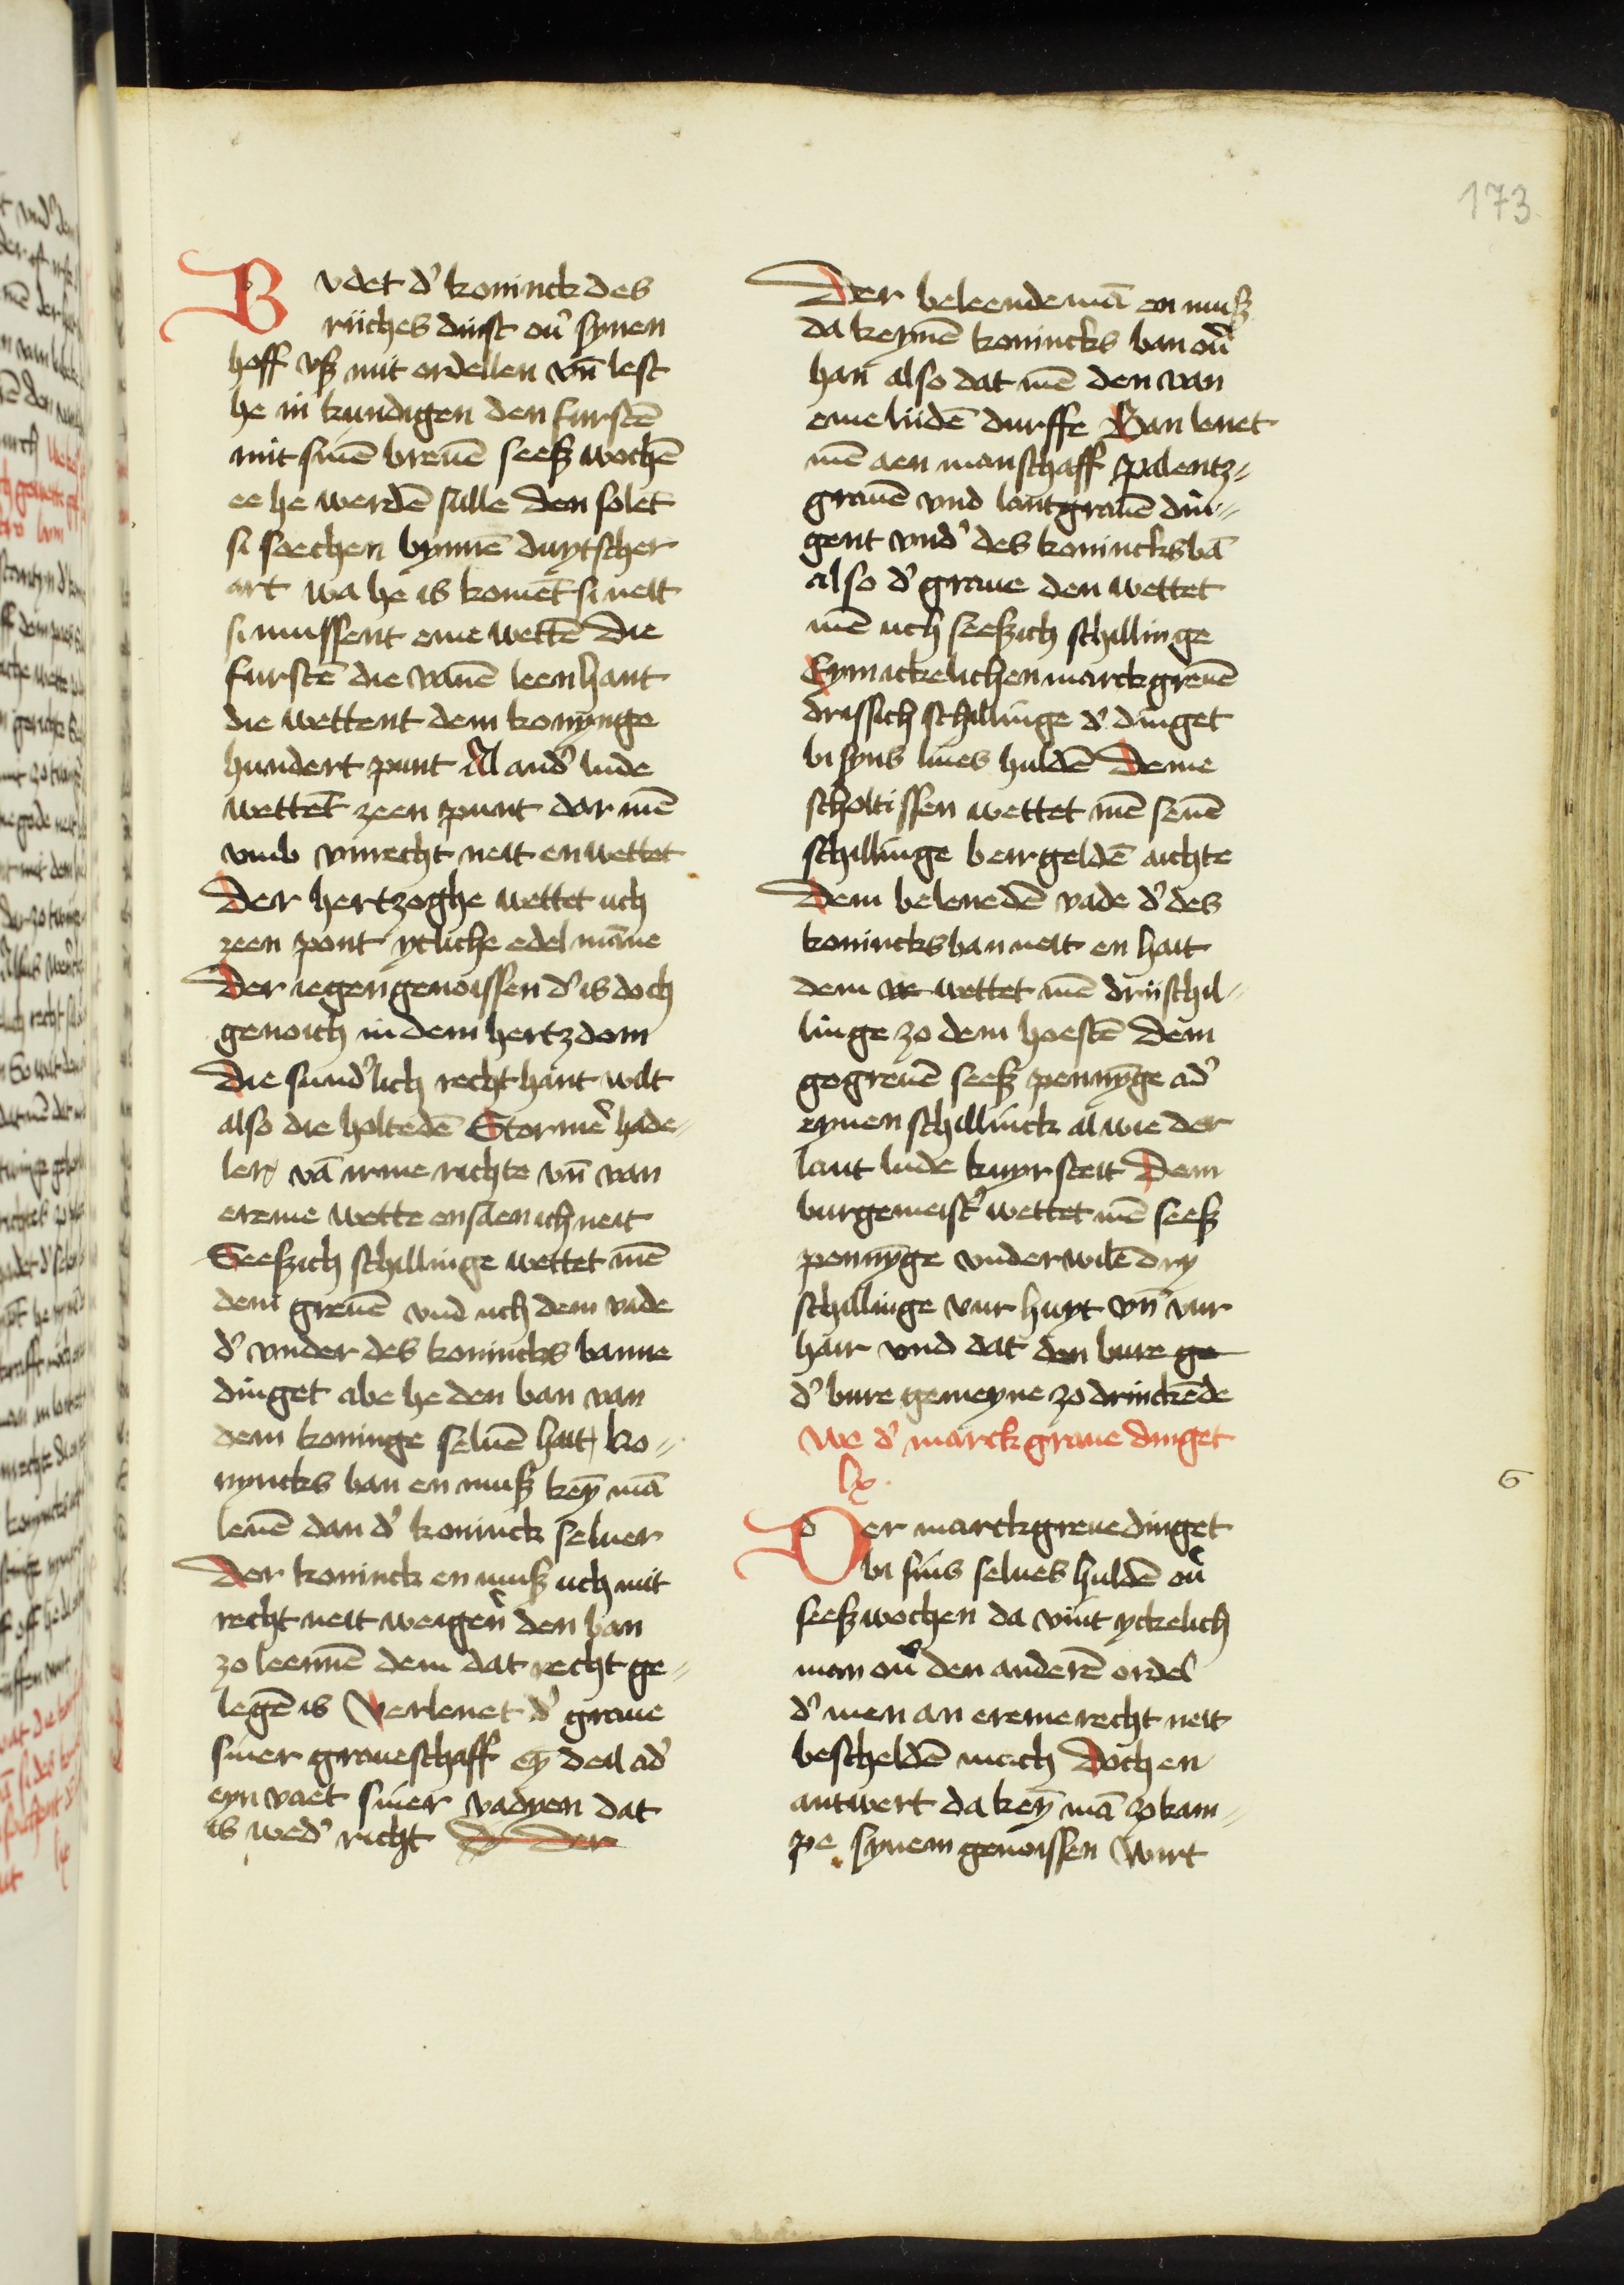 173
Budet d' koninck des
riiches dinst ou' synen
hoff vß mit ordellen vn̄ lest
he in kundigen den furstē
mit sinē breuē seeß wochē
ee he werdē sulle Den solēt
si soechen bynnē duytscher
art wa he is komēt si neit
si mussent eme wettē Die
furstē die vanē leen hant
die wettent dem konynge
hundert punt Al and' lude
wettēt zeen punt dar mē
vmb vnrecht neit en wettet
Der hertzoghe wettet uch
zeen pont ytliche edel māne
Der iegen genoissen d' is doch
genoich in dem hertzdom
Die sund'lich recht hant wilt
also die holtedē Storme' hade-
ler vā irme richte vn̄ van
ereme wette en saen ich neit
Seeßich schillinge wettet mē
dem greuē vnd uch dem vade
d' vnder des konincks banne
dinget abe he den ban van
dem koninge seluē hait, ko=
nyncks ban en muß keȳ mā
lenē dan d' koninck seluer
Der koninck en muß uch mit
recht neit weigen' den ban
zo leennē dem dat recht ge=
legē is Verlenet d' graue
siner graueschaff eȳ deil ad'
eyn vaet siner vadyen dat
is wed' richt D Der
Der beleende mā en muß
da keynē konincks ban ou'
han also dat mē den van
eme liidē durffe Ban lenet
mē aen manschaff Palentz=
grauē vnd lantgrauē din=
gent vnd' des konincks bā
also d' graue den wettet
mē uch seeßich schillinge
Eym ickelichen marckgreuē
drissich schillinge d' dinget
bi syns liues huldē Deme
scholtissen wettet mē seuē
schillinge beirgeldē aichte
Dem belenedē vade d' des
konincks ban neit en hait
dem we wettet mē drii schil=
linge zo dem hoestē Dem
gogreuē seeß pennȳge ad'
eynen schillinck al wie der
lant lude kuyr steit Dem
burgemeist' wettet mē seeß
pennȳge vnderwilē dry
schillinge vur huyt vn̄ vur
hair vnd dat den bure ge
d' bure gemeyne zo drinckēde
We d' marckgraue dinget
lx.
Der marckgreue dinget
bi sins selues huldē ou'
seeß wochen da vint yckelich
man ou' den anderē ordel
d' men an ereme recht neit
bescheldē mach Doch en
antwert da keȳ mā zo kam=
pe synem genoissen Wirt
6